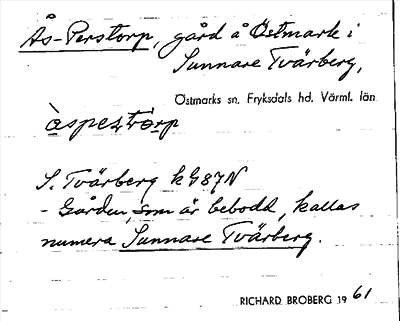 Ås-Perstorp, gård å Östmark i
Sunnare Tvärberg,
Östmarks sn. Fryksdals hd. Värml. län
àspeṣṭò̀rp
S. Tvärberg k G87N
- Gården, som är bebodd, kallas
numera Sunnare Tvärberg.
RICHARD BROBERG 1961